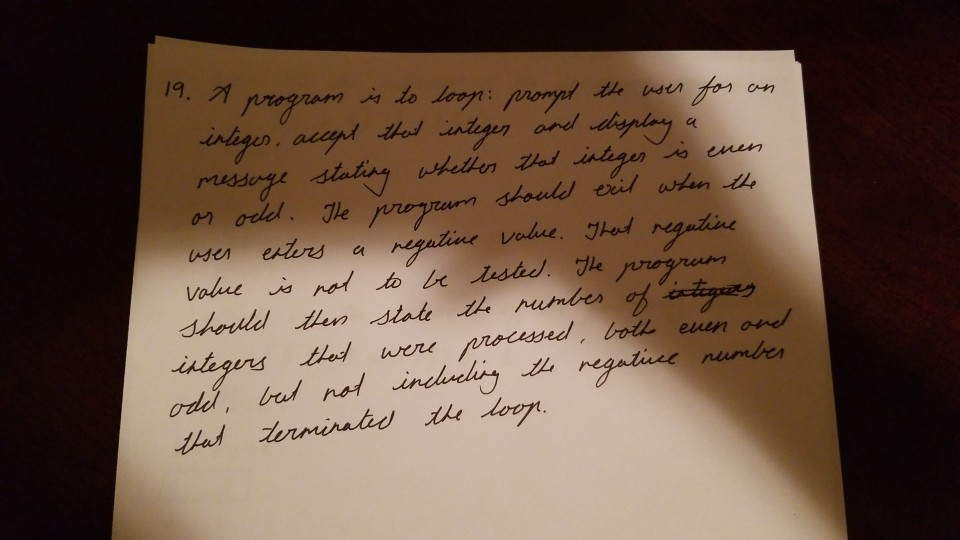 19. A program is to loop: prompt the user for an
integer, accept that integer and display a
message stating whether that integer is even
or odd. The program should exit when the
user enters a negative value. That negative
value is not to be tested. The program
should then state the number of integers
integers that were processed, both even and
odd, but not including the negative number
that terminated the loop.